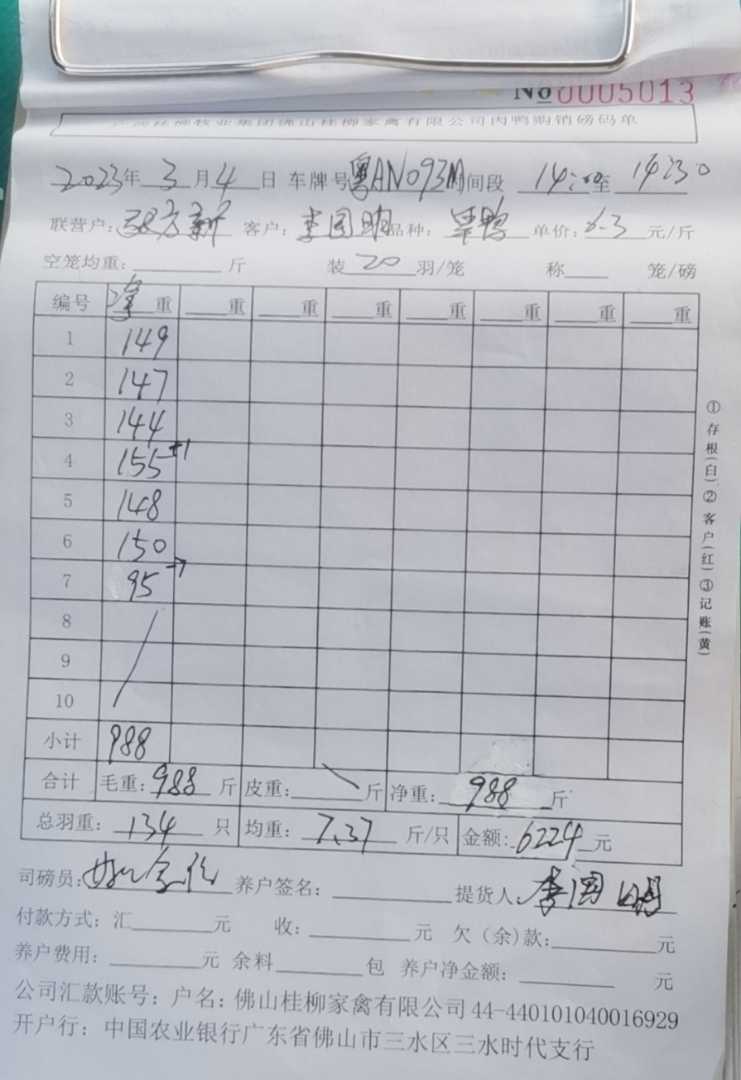 №0005013
桂柳牧业集团佛山桂柳家禽有限公司肉鸭购销磅码单
2023年 3 月 4 日 车牌号 粤AN093M 时间段 14:00 至 14:30
联营户: 新 客户: 李国明 品种: 单价: 6.3 元/斤
空笼均重: 斤 装 20 羽/笼 称 笼/磅
编号 重 重 重 重 重 重 重 重
1 149
2 147
3 144
4 155 +1
5 148
6 150
7 95 -7
8
9
10
小计 988
合计 毛重: 988 斤 皮重: 斤 净重: 988 斤
总羽重: 134 只 均重: 7.37 斤/只 金额: 6224 元
司磅员: 养户签名: 提货人: 李国明
付款方式: 汇 元 收: 元 欠(余)款: 元
养户费用: 元 余料 包 养户净金额: 元
公司汇款账号: 户名: 佛山桂柳家禽有限公司 44-440101040016929
开户行: 中国农业银行广东省佛山市三水区三水时代支行
①存根(白)②客户(红)③记账(黄)